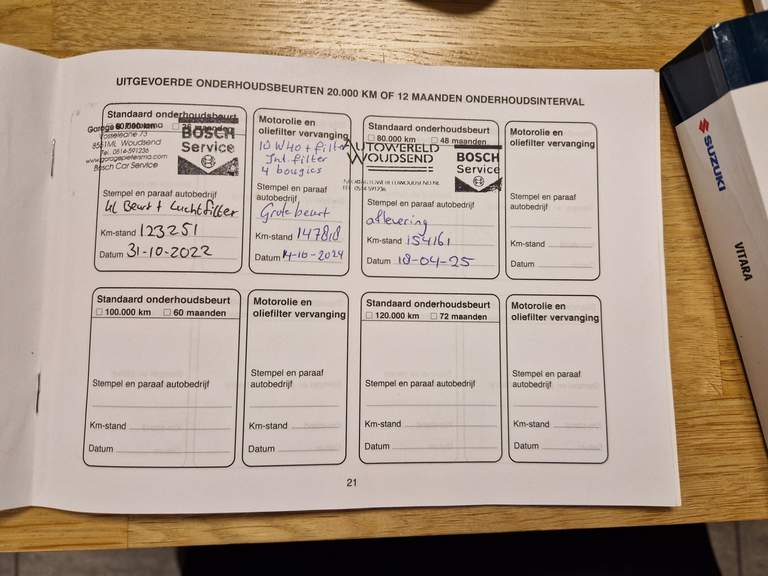 UITGEVOERDE ONDERHOUDSBEURTEN 20.000 KM OF 12 MAANDEN ONDERHOUDSINTERVAL
Standaard onderhoudsbeurt
8561ML Woudsend
Tel. 0514-591236
www.garagepietersma.com
Bosch Car Service
BOSCH
Service
Stempel en paraaf autobedrijf
kl Beurt + Luchtfilter
Km-stand 123251
Datum 31-10-2022
Motorolie en
oliefilter vervanging
10 W40 + filter
Int. filter
4 bougies
Stempel en paraaf
autobedrijf
Grote beurt
Km-stand 147818
Datum 14-10-2024
Standaard onderhoudsbeurt
□ 80.000 km □ 48 maanden
AUTOWERELD
WOUDSEND
BOSCH
Service
Stempel en paraaf autobedrijf
aflevering
Km-stand 154161
Datum 18-04-25
Motorolie en
oliefilter vervanging
Stempel en paraaf
autobedrijf
Km-stand
Datum
Standaard onderhoudsbeurt
□ 100.000 km □ 60 maanden
Stempel en paraaf autobedrijf
Km-stand
Datum
Motorolie en
oliefilter vervanging
Stempel en paraaf
autobedrijf
Km-stand
Datum
Standaard onderhoudsbeurt
□ 120.000 km □ 72 maanden
Stempel en paraaf autobedrijf
Km-stand
Datum
Motorolie en
oliefilter vervanging
Stempel en paraaf
autobedrijf
Km-stand
Datum
21
SUZUKI
VITARA